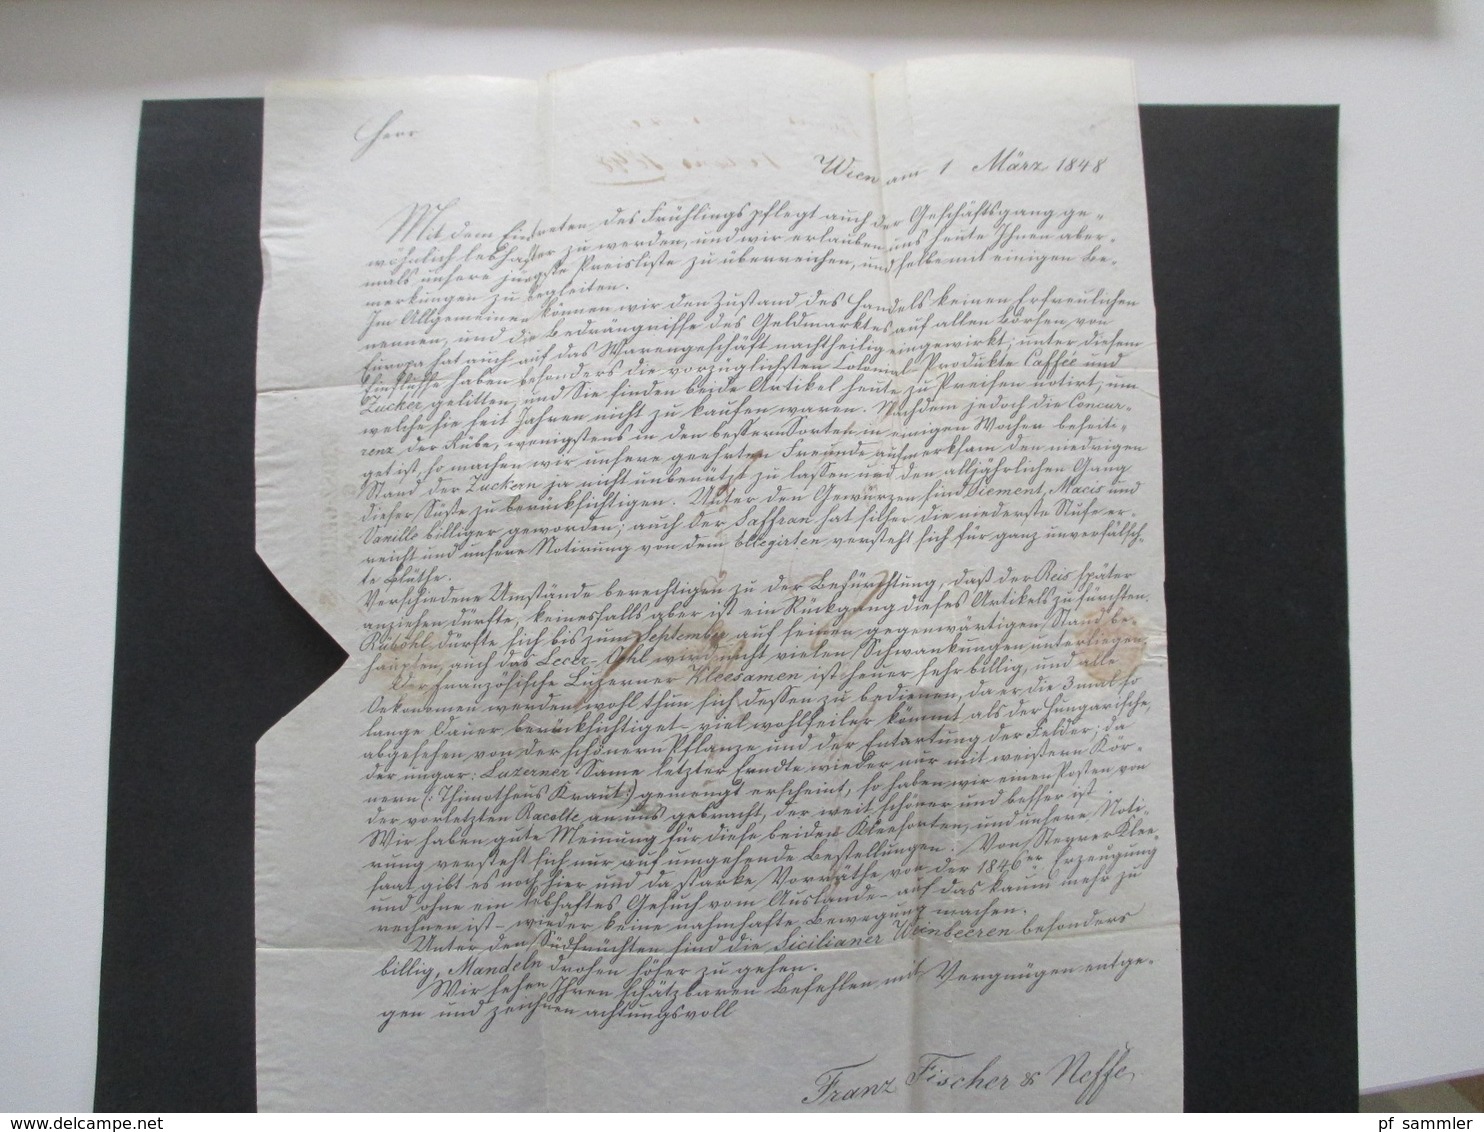 Herr
Wien am 1 März 1848
Mit dem Eintreten des Frühlings pflegt auch der Geschäftsgang ge-
wöhnlich lebhafter zu werden, und wir erlauben uns heute Ihnen aber-
mals unsere jüngste Preisliste zu überreichen, und selbe mit einigen Be-
merkungen zu begleiten.
Im Allgemeinen können wir den Zustand des Handels keinen Erfreulichen
nennen, und die Bedrängnisse des Geldmarktes auf allen Börsen von
Europa hat auch auf das Warengeschäft nachtheilig eingewirkt; unter diesem
Einflusse haben besonders die vorzüglichsten Colonial-Produkte Caffée und
Zucker gelitten, und Sie finden beide Artikel heute zu Preisen notirt, um
welche sie seit Jahren nicht zu kaufen waren. Nachdem jedoch die Concur-
renz der Rübe, wenigstens in den bessern Sorten in einigen Wochen beseiti-
get ist, so machen wir unsere geehrten Freunde aufmerksam den niedrigen
Stand der Zuckern ja nicht unbenützt zu lassen und den alljährlichen Gang
dieser Süße zu berücksichtigen. Unter den Gewürzen sind Piement, Macis und
Vanille billiger geworden; auch der Saffran hat hier die niederste Stufe er-
reicht und unsere Notirung von dem Elegirten versteht sich für ganz unverfälsch-
te Blüthe.
Verschiedene Umstände berechtigen zu der Befürchtung, daß der Reis später
anziehen dürfte, keinesfalls aber ist ein Rückgang dieses Artikels zu fürchten.
Rüböhl dürfte sich bis zum September auf seinen gegenwärtigen Stand be-
haupten, auch das Lecer-Öhl wird nicht vielen Schwankungen unterliegen.
Der französische Luzerner Kleesamen ist heuer sehr billig, und alle
Oekonomen werden wohl thun sich dessen zu bedienen, da er die 3 mal so
lange Dauer berücksichtiget - viel wohlfeiler kömmt als der Hungarische,
abgesehen von der schönern Pflanze und der Entartung der Felder; da
der ungar: Luzerner Same letzter Erndte wieder nur mit weißern Kör-
nern (: Thimotheus Kraut :) gemengt erscheint, so haben wir einen Posten von
der vorletzten Racolte an uns gebracht, der weit schöner und besser ist.
Wir haben gute Meinung für diese beiden Kleesorten, und unsere Noti-
rung versteht sich nur auf umgehende Bestellungen. Von Steyrer Klee-
saat gibt es noch hier und da starke Vorräthe von der 1846er Erzeugung
und ohne ein lebhaftes Gesuch vom Auslande - auf das kaum mehr zu
rechnen ist - wieder keine namhafte Bewegung machen.
Unter den Südfrüchten sind die Sicilianer Weinbeeren besonders
billig, Mandeln drohen höher zu gehen.
Wir sehen Ihren schätzbaren Befehlen mit Vergnügen entge-
gen und zeichnen achtungsvoll
Franz Fischer & Neffe
pf sammler